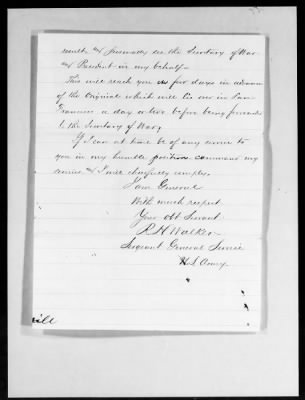 results & personally see the Secretary of War
& President in my behalf—
This will reach you a few days in advance
of the Original which will lie over in San
Francisco a day or two before being forwarded
to the Secretary of War,
If I can at time be of any service to
you in my humble position command my
service & I will cheerfully comply.
I am General
With much respect
Your obt Servant
R H Walker
Sergeant General Service
U.S. Army